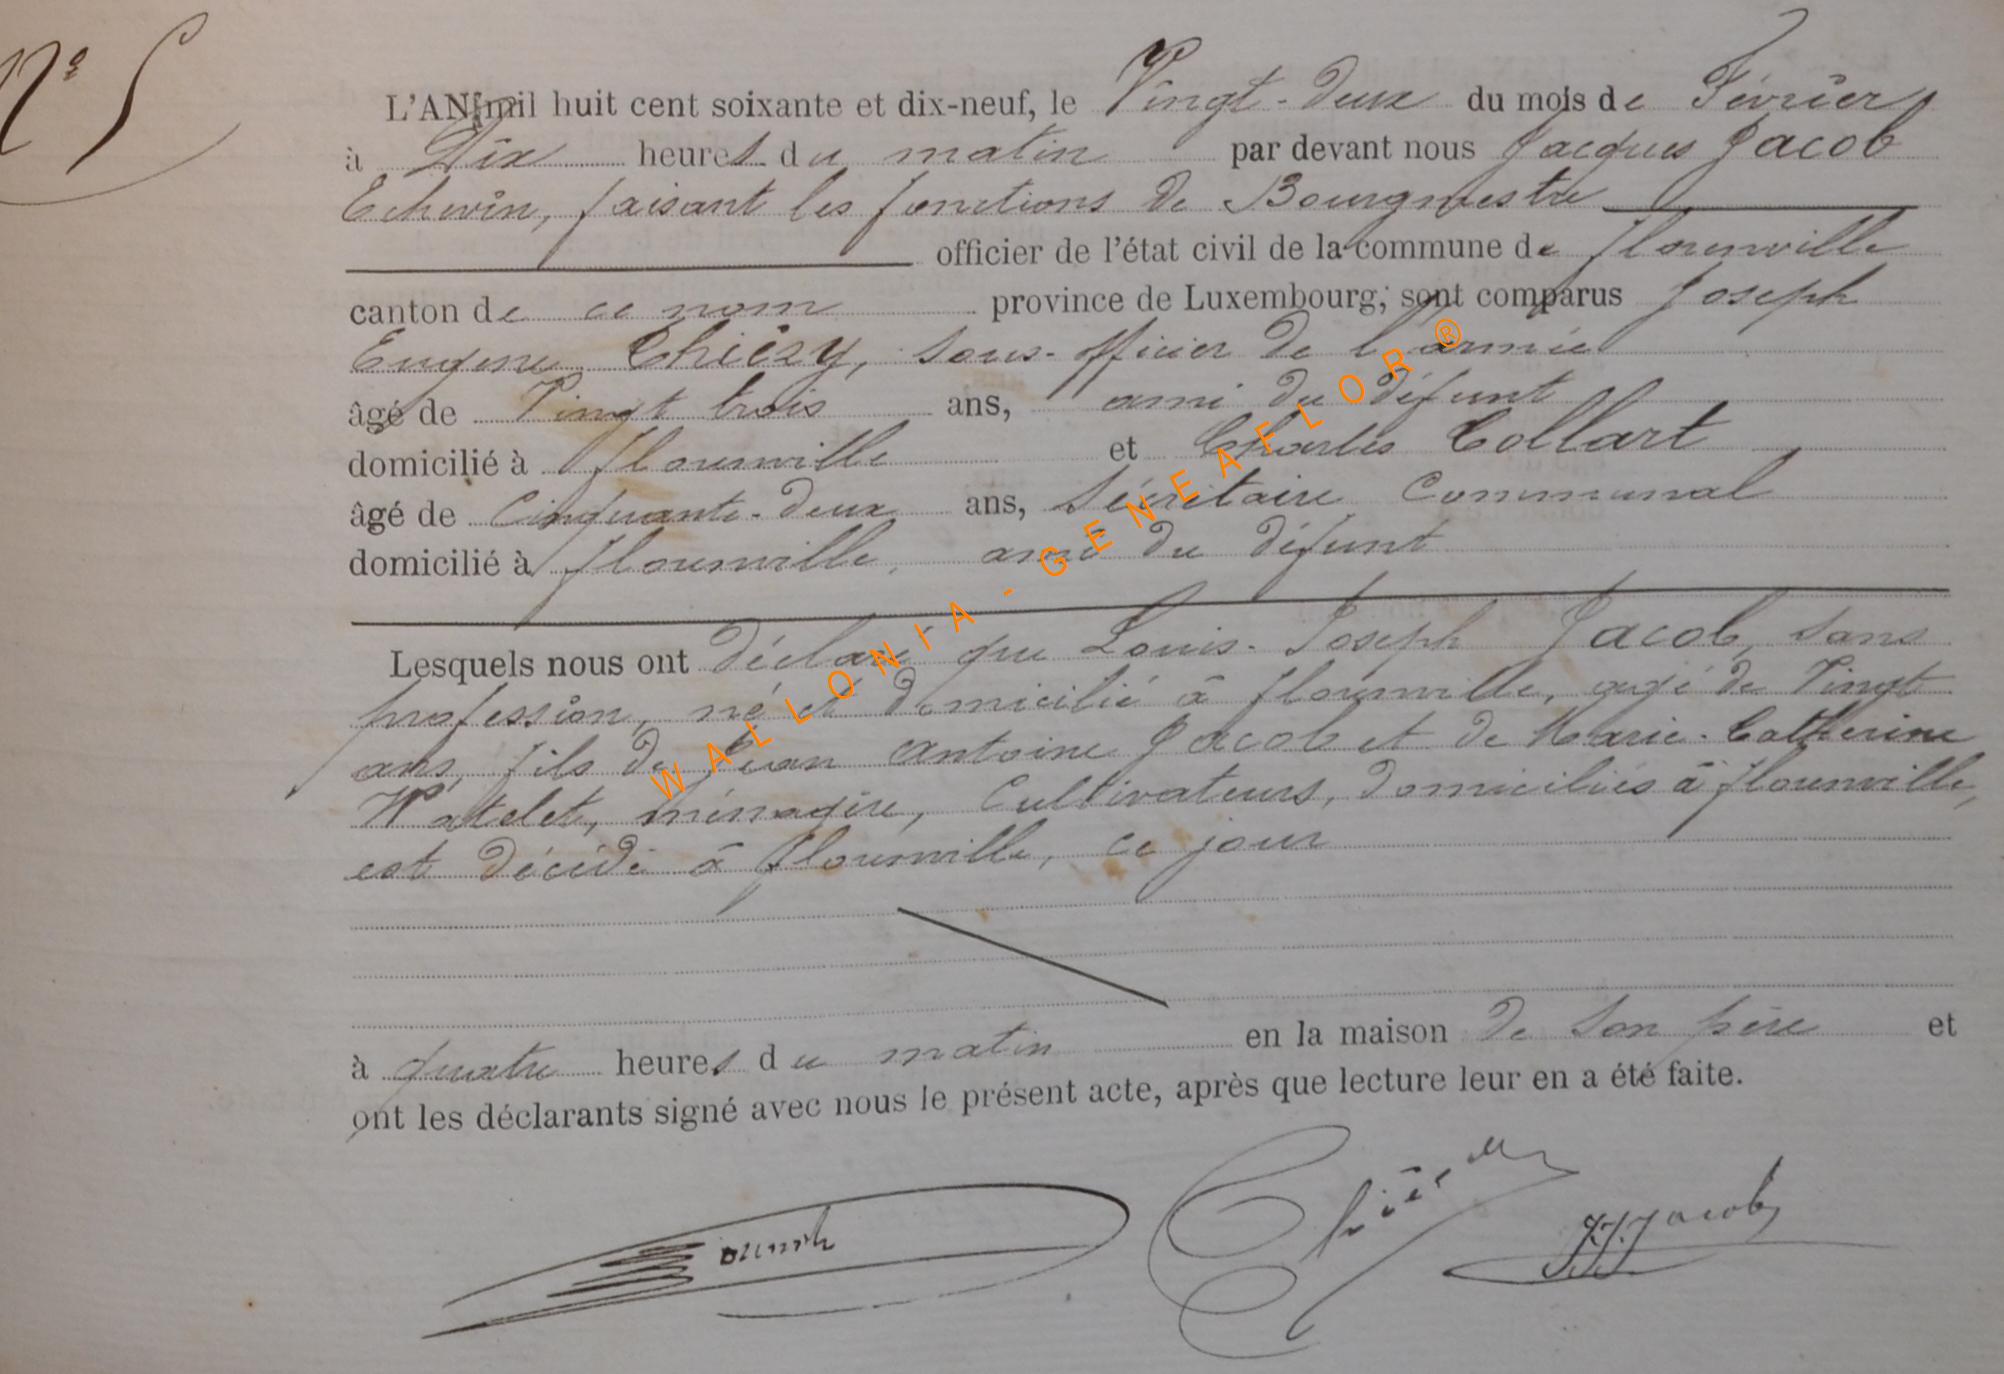 Nº 5
L'AN mil huit cent soixante et dix-neuf, le Vingt-deux du mois de Février,
à Dix heures du matin par devant nous Jacques Jacob
Echevin, faisant les fonctions de Bourgmestre
officier de l'état civil de la commune de florenville
canton de ce nom province de Luxembourg, sont comparus Joseph
Eugene Thiéry, sous-officier de l'armée
âgé de Vingt trois ans, ami du défunt
domicilié à florenville et Charles Collart
âgé de Cinquante-deux ans, Sécrétaire Communal
domicilié à florenville, ami du défunt
Lesquels nous ont déclaré que Louis-Joseph Jacob, sans
profession, né et domicilié à florenville, agé de Vingt
ans, fils de Jean Antoine Jacob et de Marie-Catherine
Watelet, ménagère, Cultivateurs, domiciliés à florenville,
est décédé à florenville, ce jour
à quatre heures du matin en la maison de son père et
ont les déclarants signé avec nous le présent acte, après que lecture leur en a été faite.
Thiéry
J.J. Jacob
WALLONIA - GENEAFLOR ®